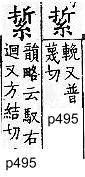 輓又普
蔑切
p495
韻略云馭右
迴又方結切
p495